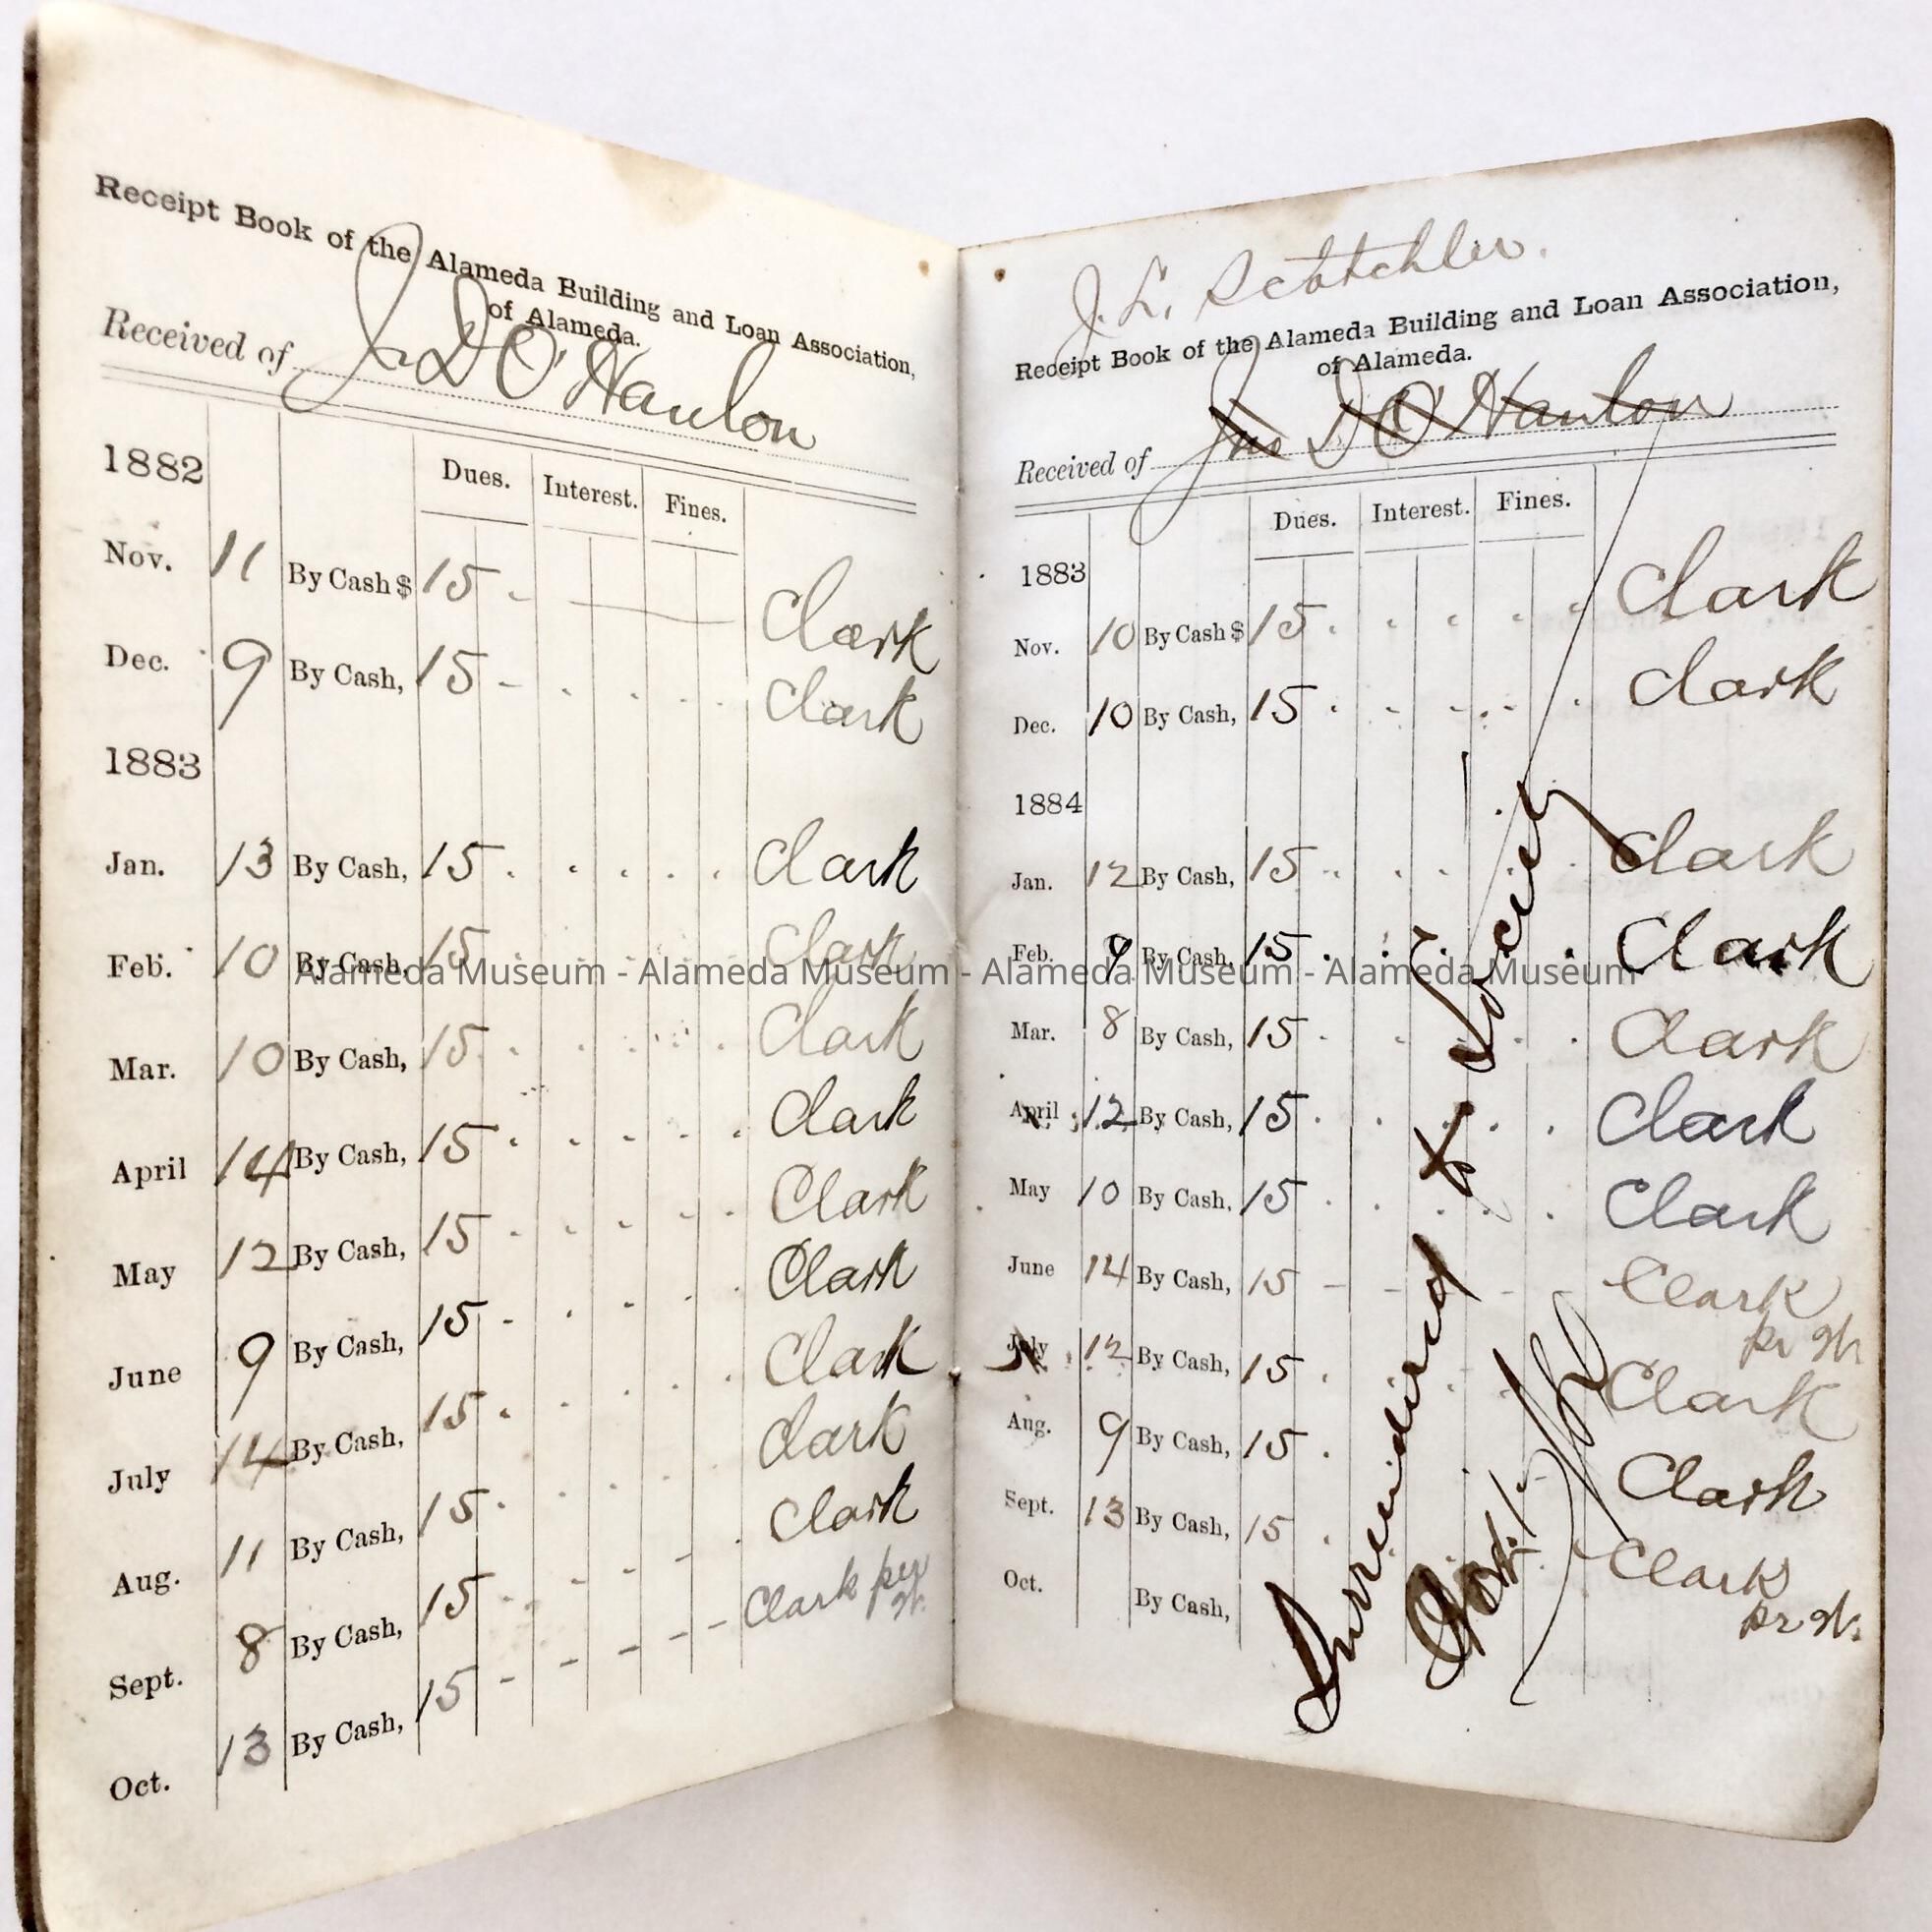 Receipt Book of the Alameda Building and Loan Association,
of Alameda.
Received of J D O'Hanlon
Dues. Interest. Fines.
1882
Nov. 11 By Cash $ 15 - Clark
Dec. 9 By Cash, 15 - Clark
1883
Jan. 13 By Cash, 15 Clark
Feb. 10 By Cash, 15 Clark
Mar. 10 By Cash, 15 Clark
April 14 By Cash, 15 Clark
May 12 By Cash, 15 Clark
June 9 By Cash, 15 - Clark
July 14 By Cash, 15 Clark
Aug. 11 By Cash, 15 Clark
Sept. 8 By Cash, 15 - Clark
Oct. 13 By Cash, 15 - Clark per
J. L. Scotchler.
Receipt Book of the Alameda Building and Loan Association,
of Alameda.
Received of Jno D O'Hanlon
Dues. Interest. Fines.
1883
Nov. 10 By Cash $ 15 Clark
Dec. 10 By Cash, 15 Clark
1884
Jan. 12 By Cash, 15 Clark
Feb. 9 By Cash, 15 Clark
Mar. 8 By Cash, 15 Clark
April 12 By Cash, 15 Clark
May 10 By Cash, 15 Clark
June 14 By Cash, 15 - Clark
pr
July 12 By Cash, 15 Clark
Aug. 9 By Cash, 15 Clark
Sept. 13 By Cash, 15 Clark
pr
Oct. By Cash,
Surrendered to Society
Oct. 1/84
Alameda Museum - Alameda Museum - Alameda Museum - Alameda Museum